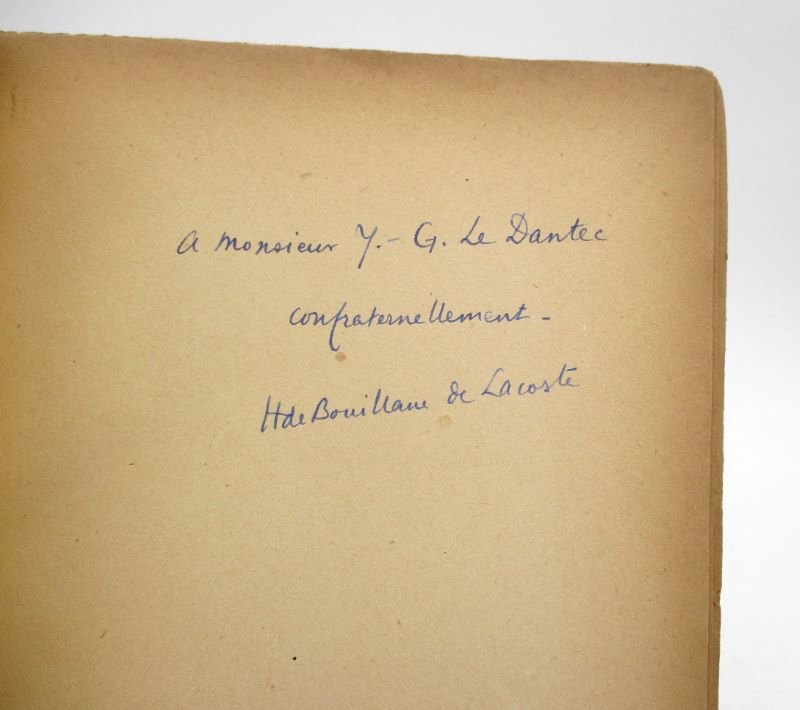 A Monsieur Y.- G. Le Dantec
confraternellement -
H de Bouillane de Lacoste